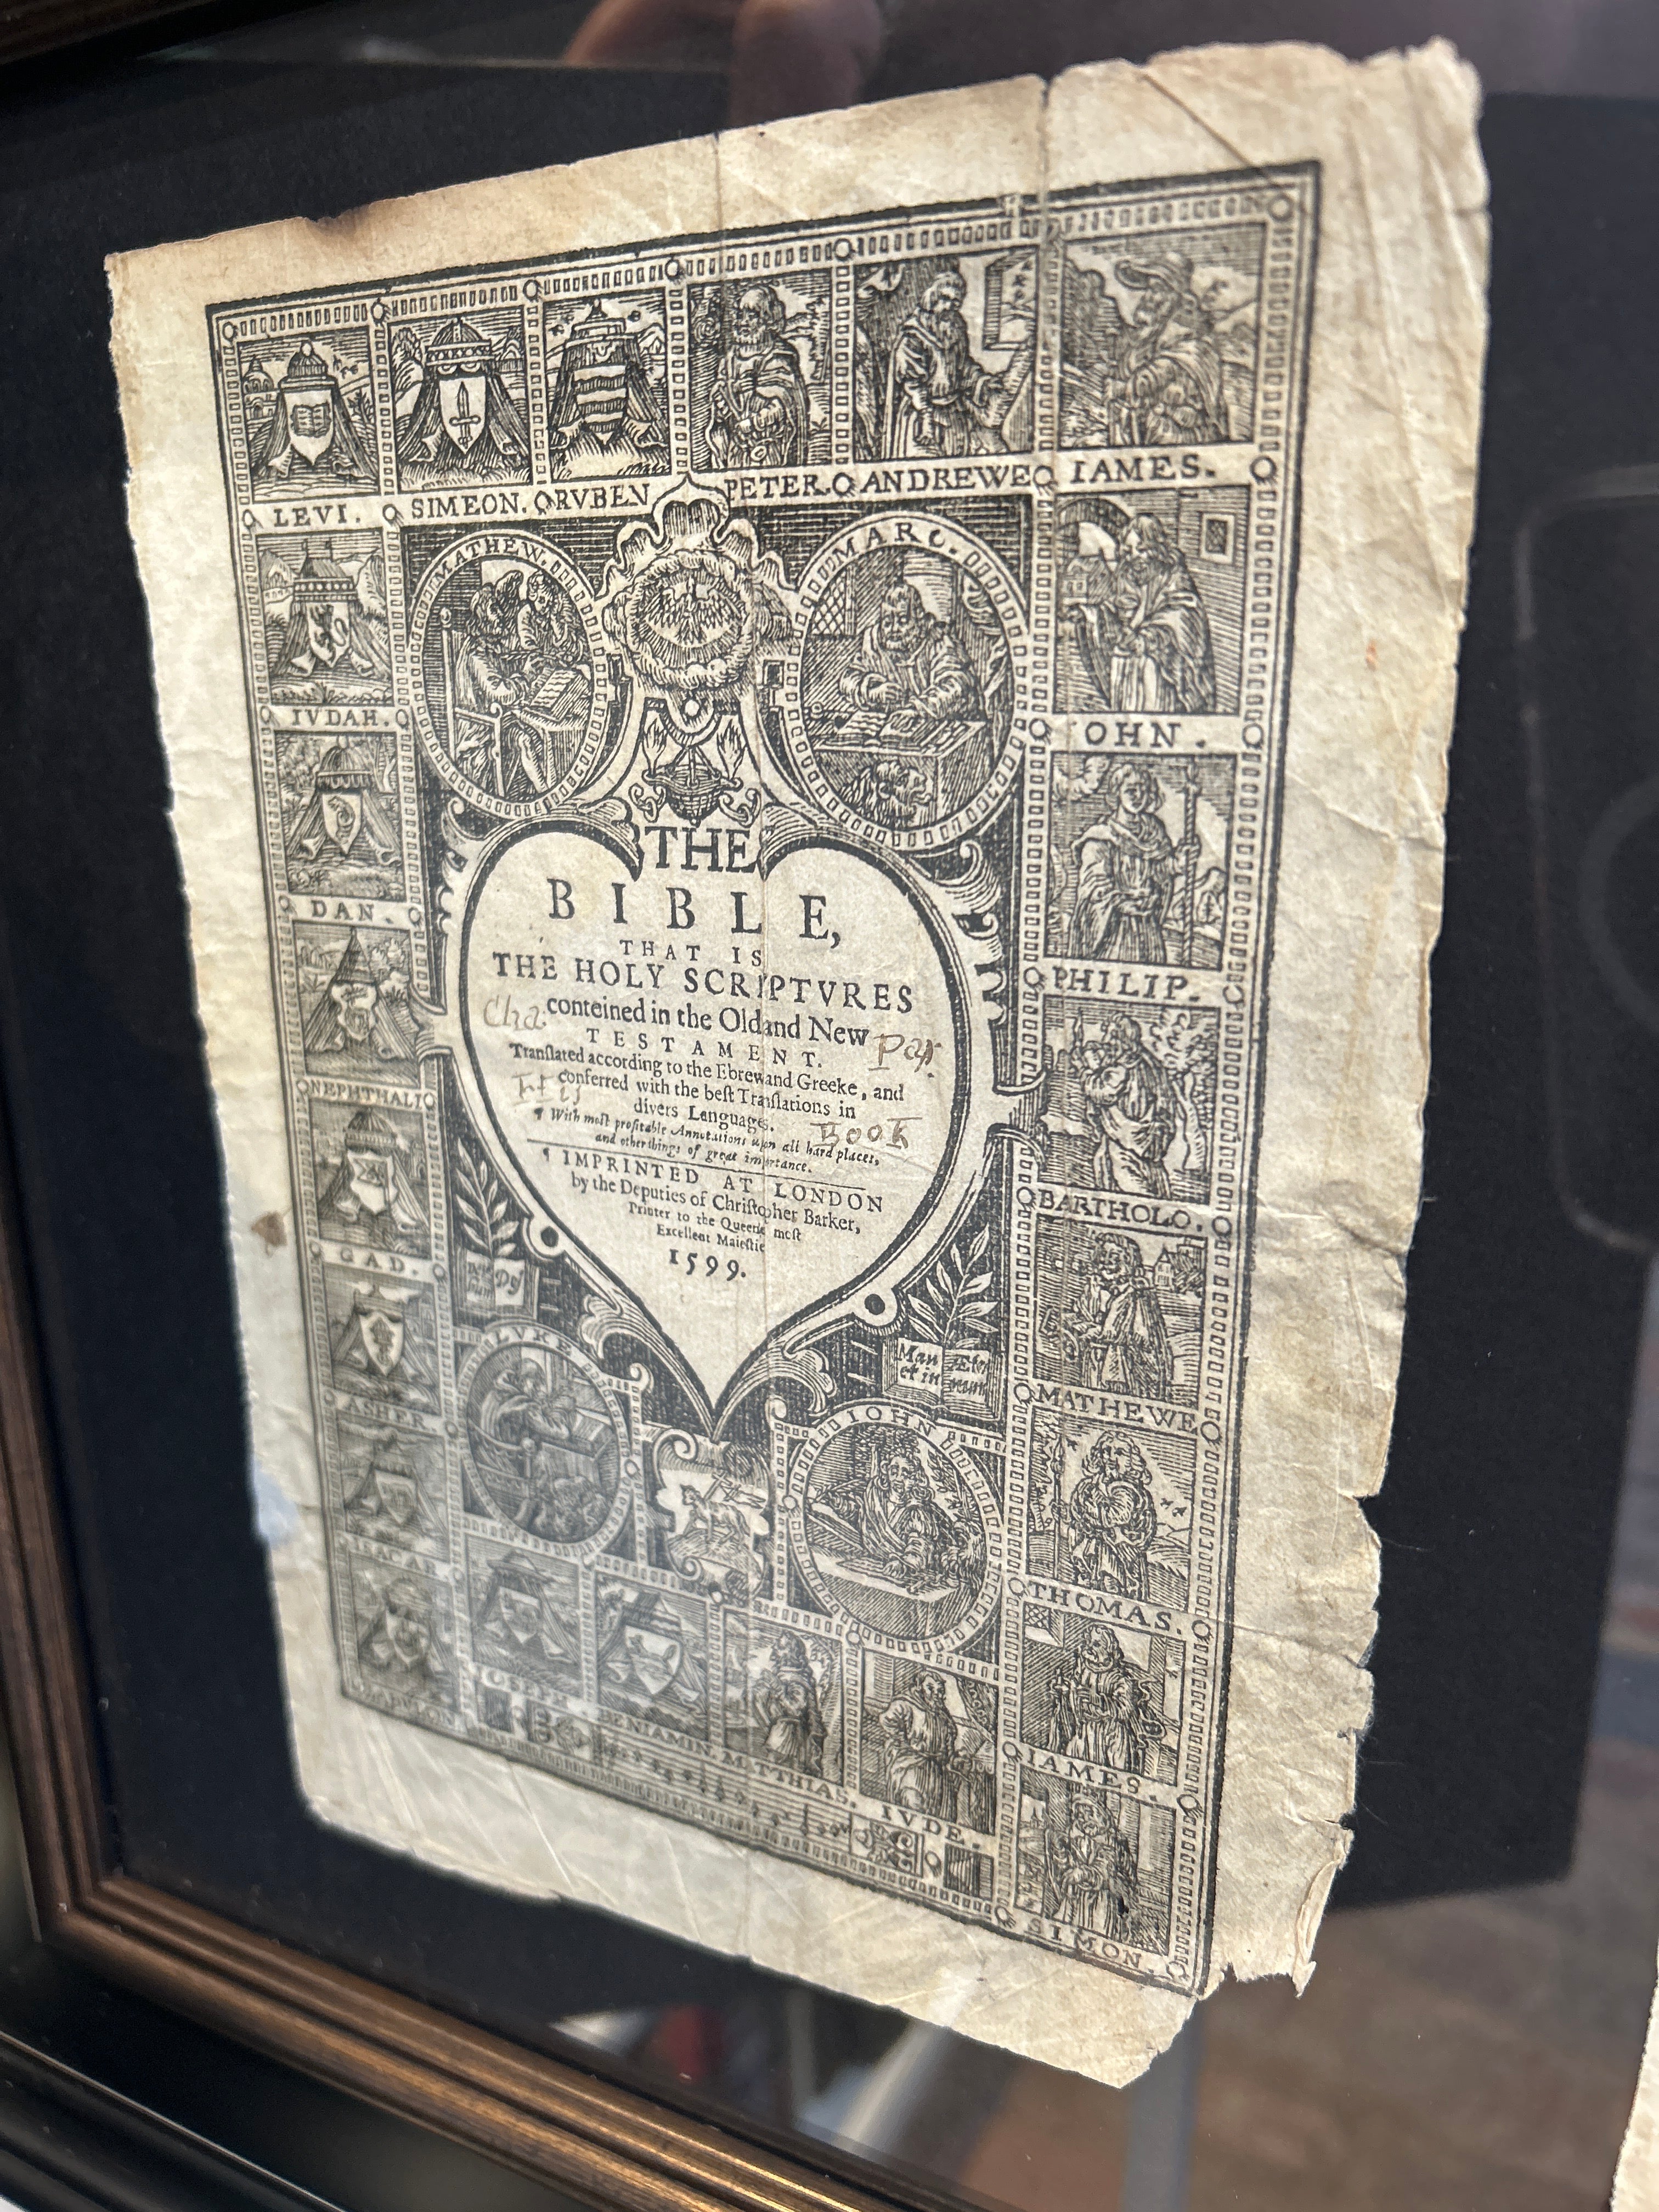 LEVI. SIMEON. RVBEN PETER ANDREWE IAMES.
MATHEW. MARC.
IVDAH. OHN.
DAN. PHILIP.
NEPHTHALI BARTHOLO.
GAD. MATHEWE
ASHER THOMAS.
THE
BIBLE,
THAT IS
THE HOLY SCRIPTVRES
Cha. conteined in the Old and New Par.
TESTAMENT.
Tranſlated according to the Ebrew and Greeke, and
conferred with the beſt Tranſlations in
divers Languages.
Book
¶ With moſt profitable Annotations upon all hard places,
and other things of great importance.
¶ IMPRINTED AT LONDON
by the Deputies of Chriſtopher Barker,
Printer to the Queenes moſt
Excellent Maieſtie
1599.
LVKE IOHN
IOSEPH. BENIAMIN. MATTHIAS. IVDE. IAMES.
SIMON.